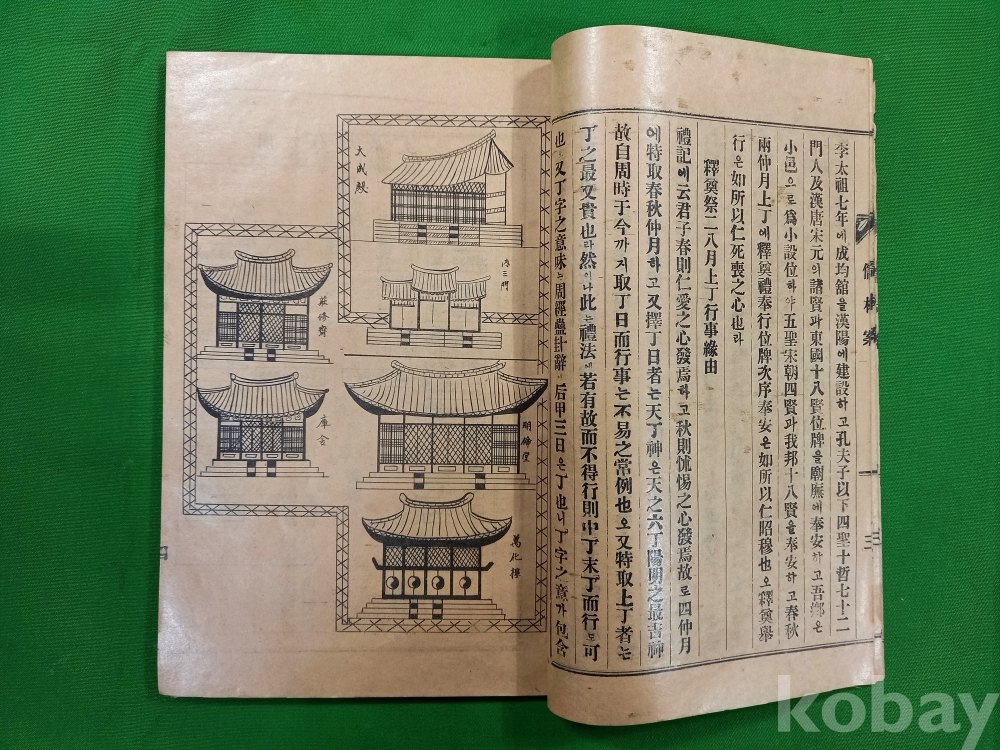 李太祖七年에成均舘을漢陽에建設하고孔夫子以下四聖十哲七十二
門人及漢唐宋元의諸賢과東國十八賢位牌을廟廡에奉安하고吾鄕은
小邑으로爲小設位하야五聖宋朝四賢과我邦十八賢을奉安하고春秋
兩仲月上丁에釋奠禮奉行位牌次序奉安은如所以仁昭穆也오釋奠擧
行은如所以仁死喪之心也라
釋奠祭二八月上丁行事緣由
禮記에云君子春則仁愛之心發焉하고秋則怵惕之心發焉故로四仲月
에特取春秋仲月하고又擇丁日者는天丁神은天之六丁陽明之最吉神
故自周時于今까지取丁日而行事는不易之常例也오又特取上丁者는
丁之最又貴也라然이나此는禮法에若有故而不得行則中丁末丁而行도可
也又丁字之意味는周經蠱卦辭에后甲三日은丁也니丁字之意가包含
儒林案
三
大成殿
內三門
藏修齋
庫舍
明倫堂
萬化樓
四
kobay